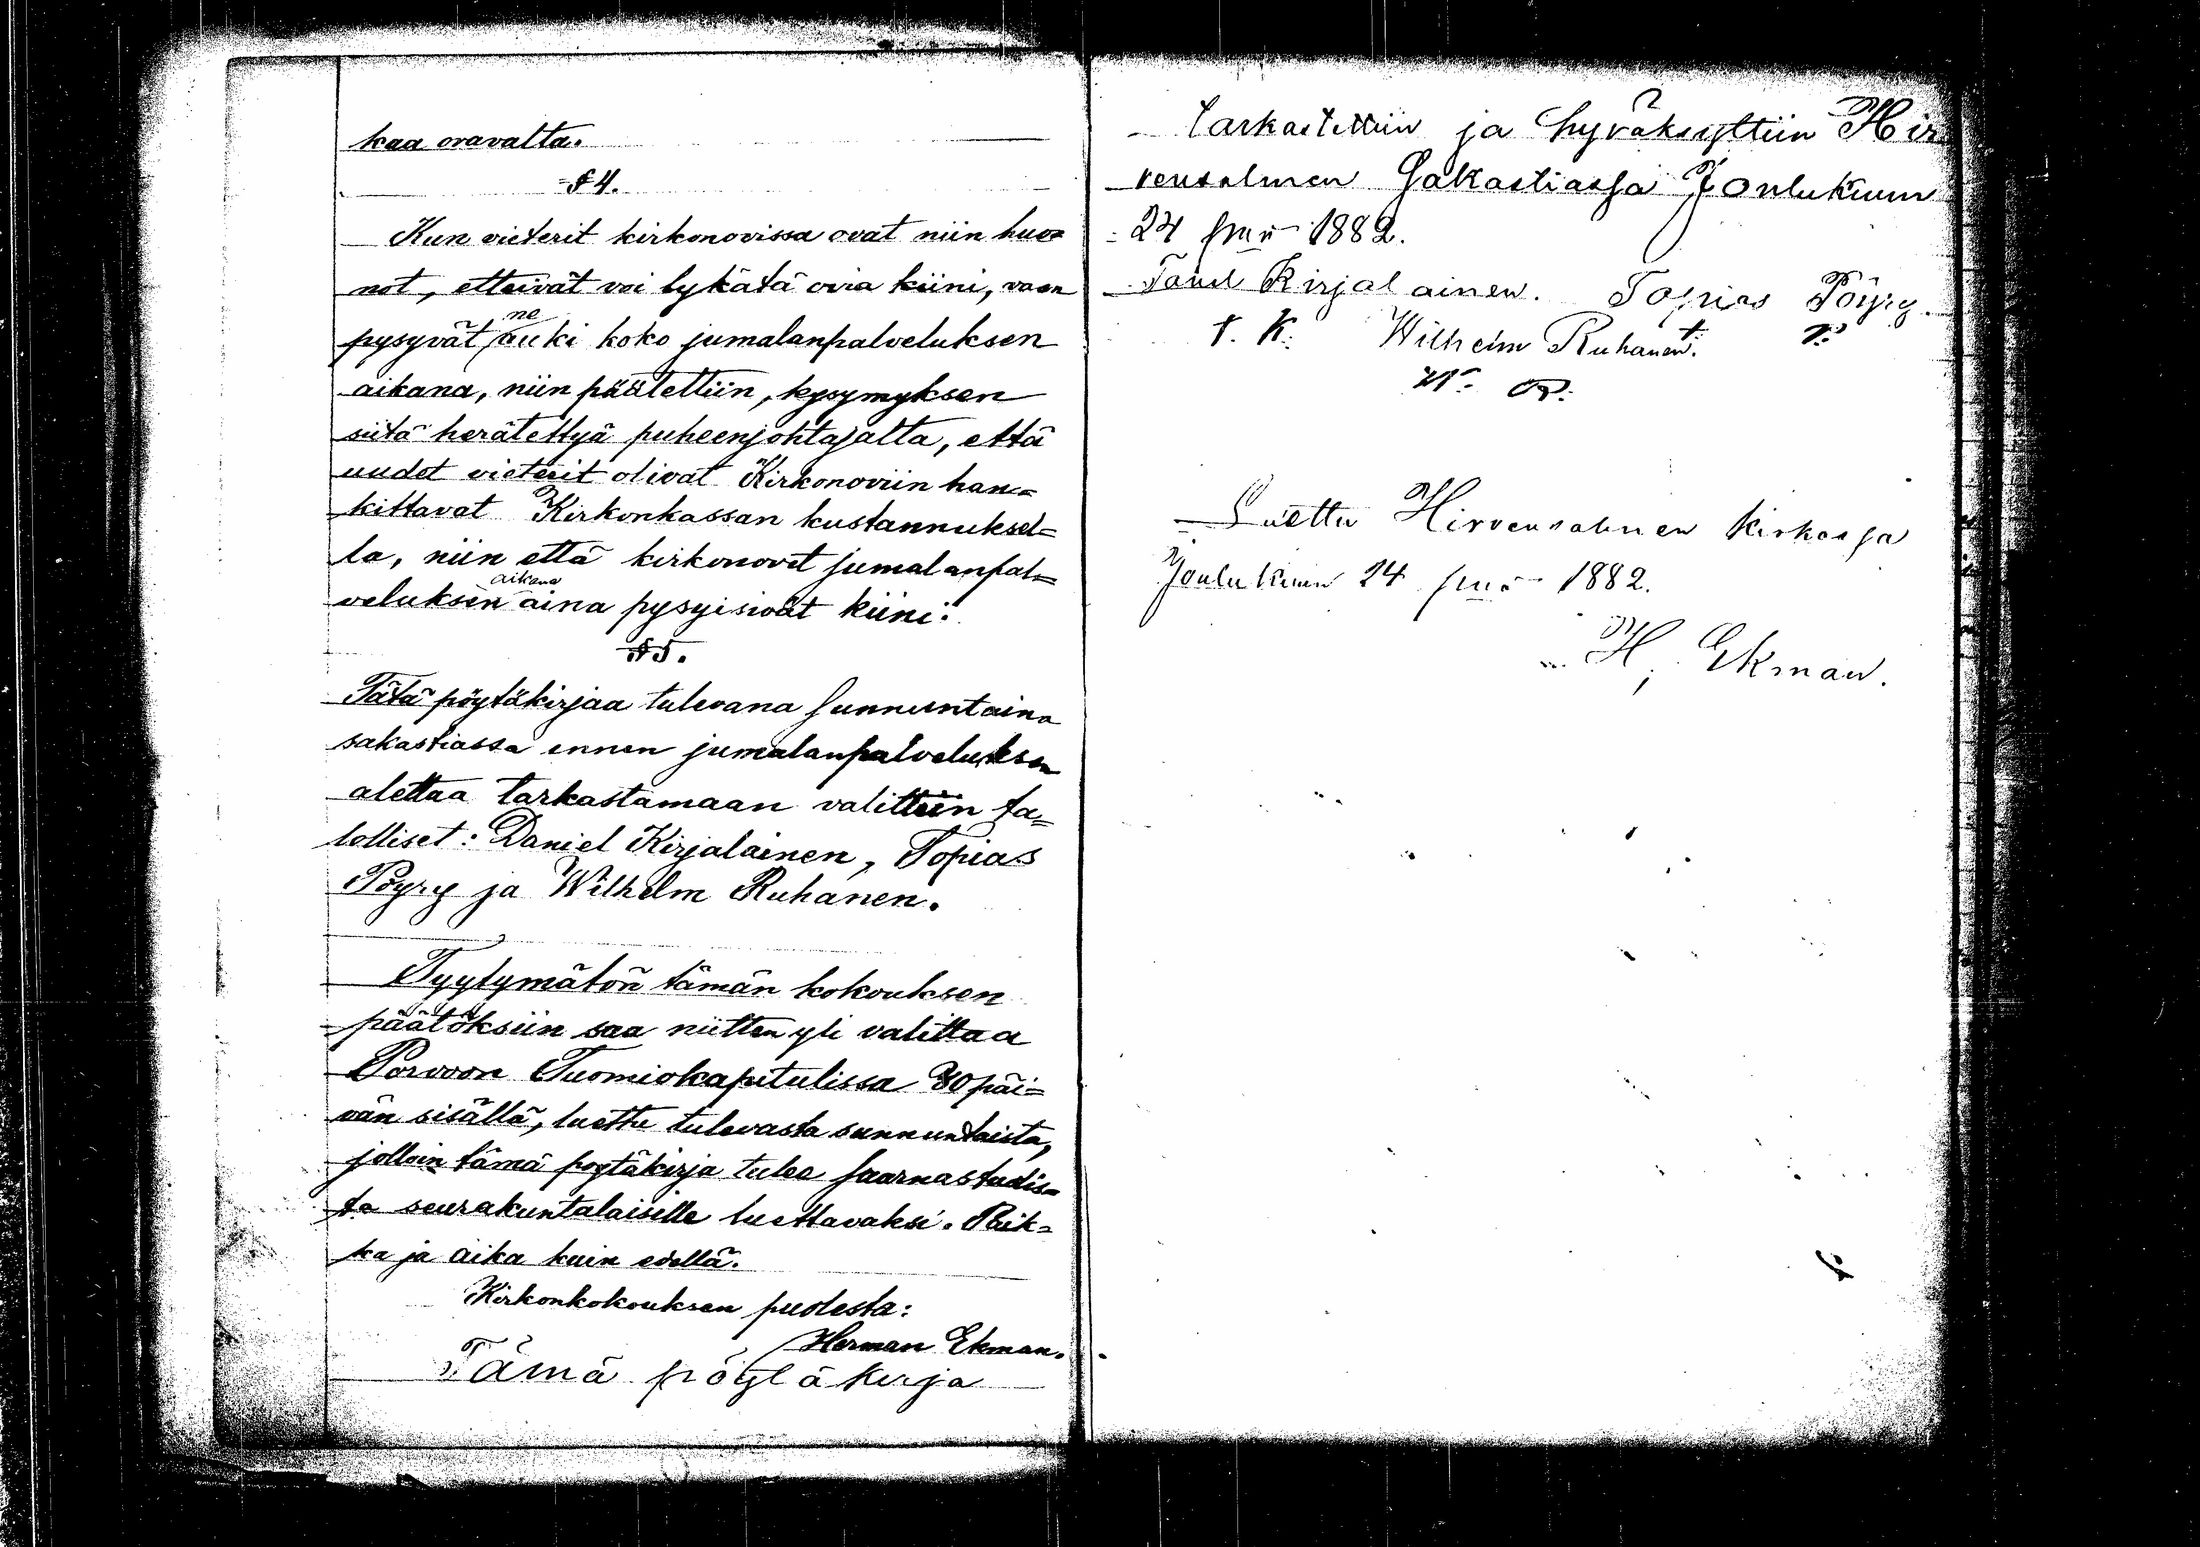 kaa oravalta.
§ 4.
Kun vieterit kirkonovissa ovat niin huo=
not, etteivät voi lykätä ovia kiini, vaan
pysyvät ne auki koko jumalanpalveluksen
aikana, niin päätettiin, kysymyksen
siitä herätettyä puheenjohtajalta, että
uudet vieterit olivat Kirkonoviin han=
kittavat Kirkonkassan kustannuksel=
la, niin että kirkonovet jumalanpal=
veluksen aikana aina pysyisivät kiini.
§ 5.
Tätä pöytäkirjaa tulevana sunnuntaina
sakastiassa ennen jumalanpalveluksen
alettaa tarkastamaan valittiin ta=
lolliset: Daniel Kirjalainen, Topias
Pöyry ja Wilhelm Ruhanen.
Tyytymätön tämän kokouksen
päätöksiin saa niitten yli valittaa
Porvoon Tuomiokapitulissa 30 päi=
vän sisällä, luettu tulevasta sunnuntaista,
jolloin tämä pöytäkirja tulee saarnastudis=
ta seurakuntalaisille luettavaksi. Paik=
ka ja aika kuin edellä.
Kirkonkokouksen puolesta:
Herman Ekman.
Tämä pöytäkirja
tarkastettiin ja hyväksyttiin Hir
vensalmen Sakastiassa Joulukuun
24 pnä 1882.
Taniel Kirjalainen. Topias Pöyry.
T. K. Wilhelm Ruhanen. T. P.
W. R.
Luettu Hirvensalmen kirkossa
Joulukuun 24 pnä 1882.
H. Ekman.